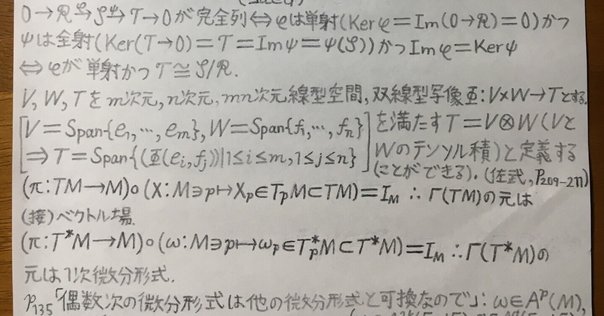 0→R→φ→S→ψ→T→0が完全列⇔φは単射(Kerφ=Im(0→R)=0)かつ
ψは全射(Ker(T→0)=T=Imψ=ψ(S))かつImφ=Kerψ
⇔φが単射かつT≅S/R.
V,W,Tをm次元,n次元,mn次元線型空間,双線型写像Φ:V×W→Tとする.
[V=Span{e₁,…,em},W=Span{f₁,…,fn}
⇒T=Span{(Φ(ei,fj)|1≦i≦m,1≦j≦n}]を満たすT=V⊗W(Vと
Wのテンソル積)と定義する
(ことができる).(佐武,P209-211)
(π:TM→M)∘(X:M∋p↦Xp∈TpM⊂TM)=IM ∴Γ(TM)の元は
(接)ベクトル場.
(π:T*M→M)∘(ω:M∋p↦ωp∈Tp*M⊂T*M)=IM∴Γ(T*M)の
元は1次微分形式.
P135「偶数次の微分形式は他の微分形式と可換なので」:ω∈Aᵖ(M),